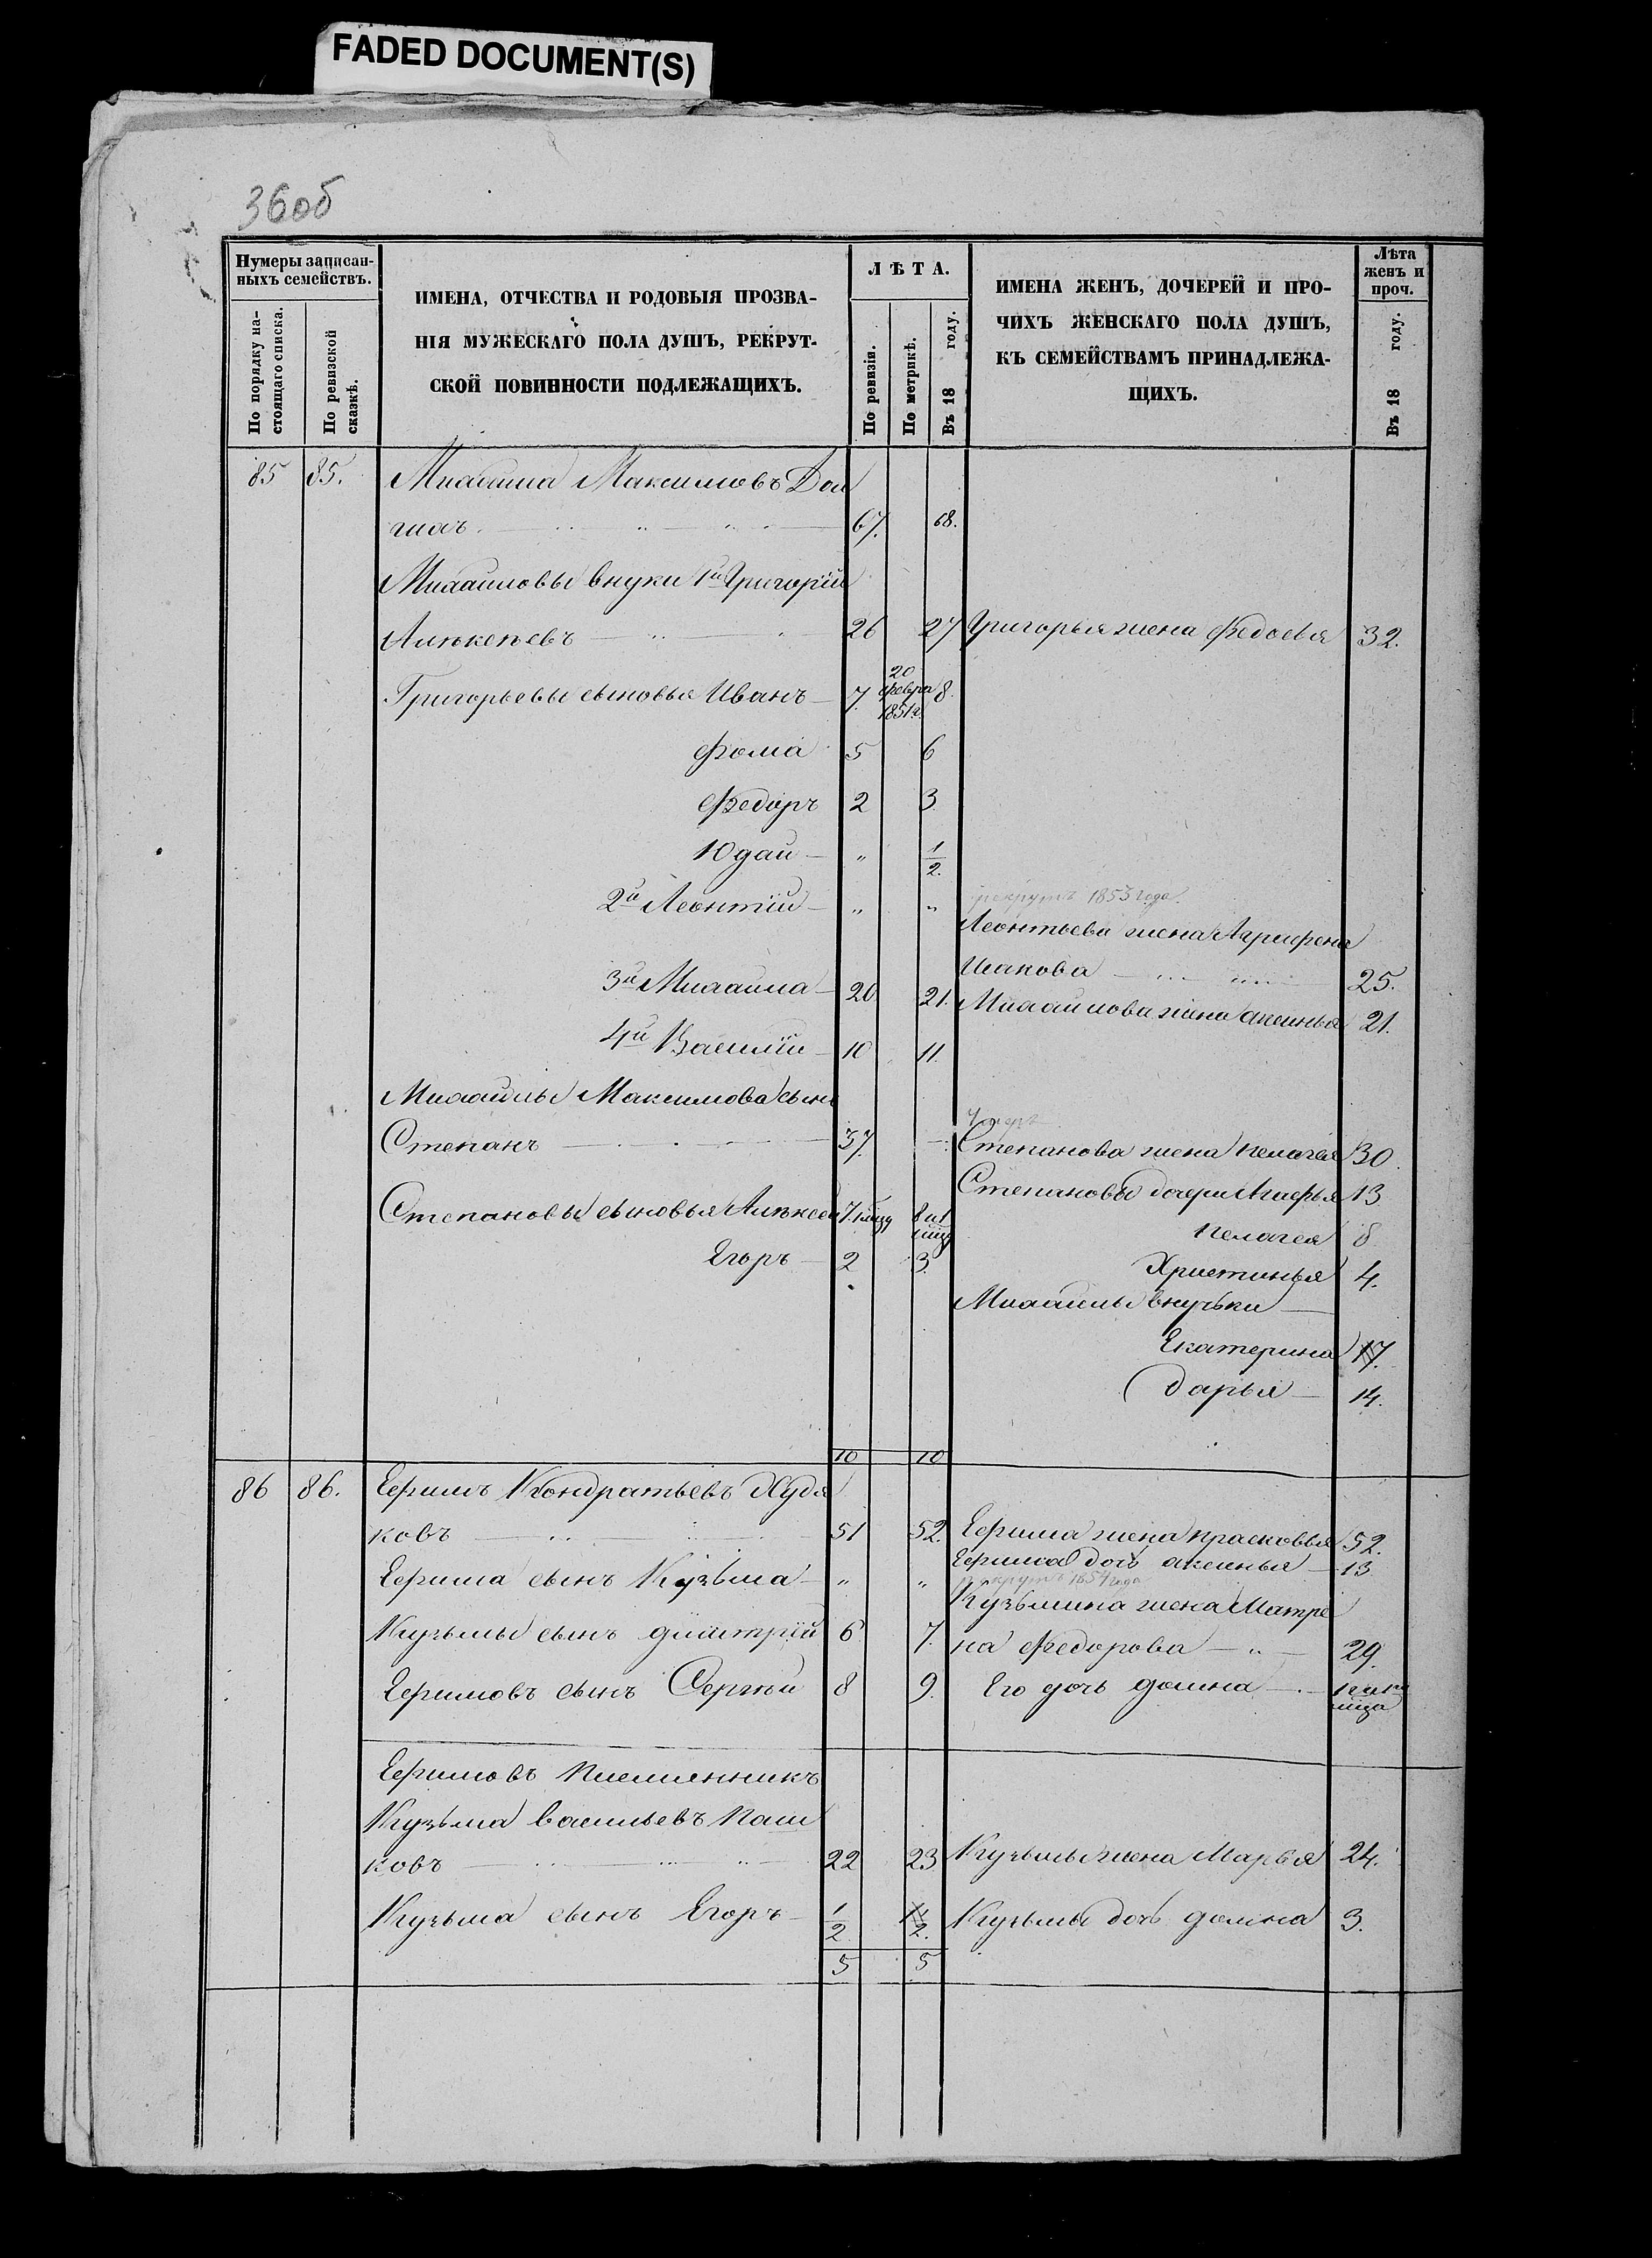 FADED DOCUMENT(S)
36об
Нумеры записан-
ныхъ семействъ.
По порядку на-
стоящаго списка.
По ревизской
сказкѣ.
ИМЕНА, ОТЧЕСТВА И РОДОВЫЯ ПРОЗВА-
НІЯ МУЖЕСКАГО ПОЛА ДУШЪ, РЕКРУТ-
СКОЙ ПОВИННОСТИ ПОДЛЕЖАЩИХЪ.
ЛѢТА.
По ревизіи.
По метрикѣ.
Въ 18 году.
ИМЕНА ЖЕНЪ, ДОЧЕРЕЙ И ПРО-
ЧИХЪ ЖЕНСКАГО ПОЛА ДУШЪ,
КЪ СЕМЕЙСТВАМЪ ПРИНАДЛЕЖА-
ЩИХЪ.
Лѣта
женъ и
проч.
Въ 18 году.
85 85. Михайла Максимовъ Дол
гихъ 67. 68.
Михайловы внуки 1й Григорій
Алѣксѣевъ 26 27 Григорья жена Федосья 32.
Григорьевы сыновья Иванъ 7. 20 февра 1851г. 8.
Фома 5 6
Федоръ 2 3.
Юдай „ 1/2.
2й Леонтій „ „ рекрутъ 1853 года.
Леонтьева жена Агрифена
Исакова 25.
3й Михайла 20 21. Михайлова жена аксинья 21.
4й Василій 10 11.
Михайлы Максимова сынъ
Степанъ 37. Умеръ
Степанова жена пелагея 30.
Степановы дочери Агафья 13
Степановы сыновья Алѣксей 7.1 мцъ 8 и 1 мцъ
пелагея 8
Егоръ 2 3. Христинья 4.
Михайлы внучьки
Екатерина 17.
дарья 14.
10 10
86 86. Ефимъ Кондратьевъ Худя
ковъ 51 52. Ефима жена прасковья 52.
Ефима дочь аксинья 13.
Ефима сынъ Кузьма „ „ рекрутъ 1854 года
Кузьмина жена Матре
Кузьмы сынъ дмитрій 6 7. на Федорова 29.
Ефимовъ сынъ Сергѣй 8 9. Его дочь домна
мца
Ефимовъ племянникъ
Кузьма васильевъ Паш
ковъ 22 23 Кузьмы жена Марья 24.
Кузьма сынъ Егоръ 1/2 1/2. Кузьмы дочь домна 3.
5 5